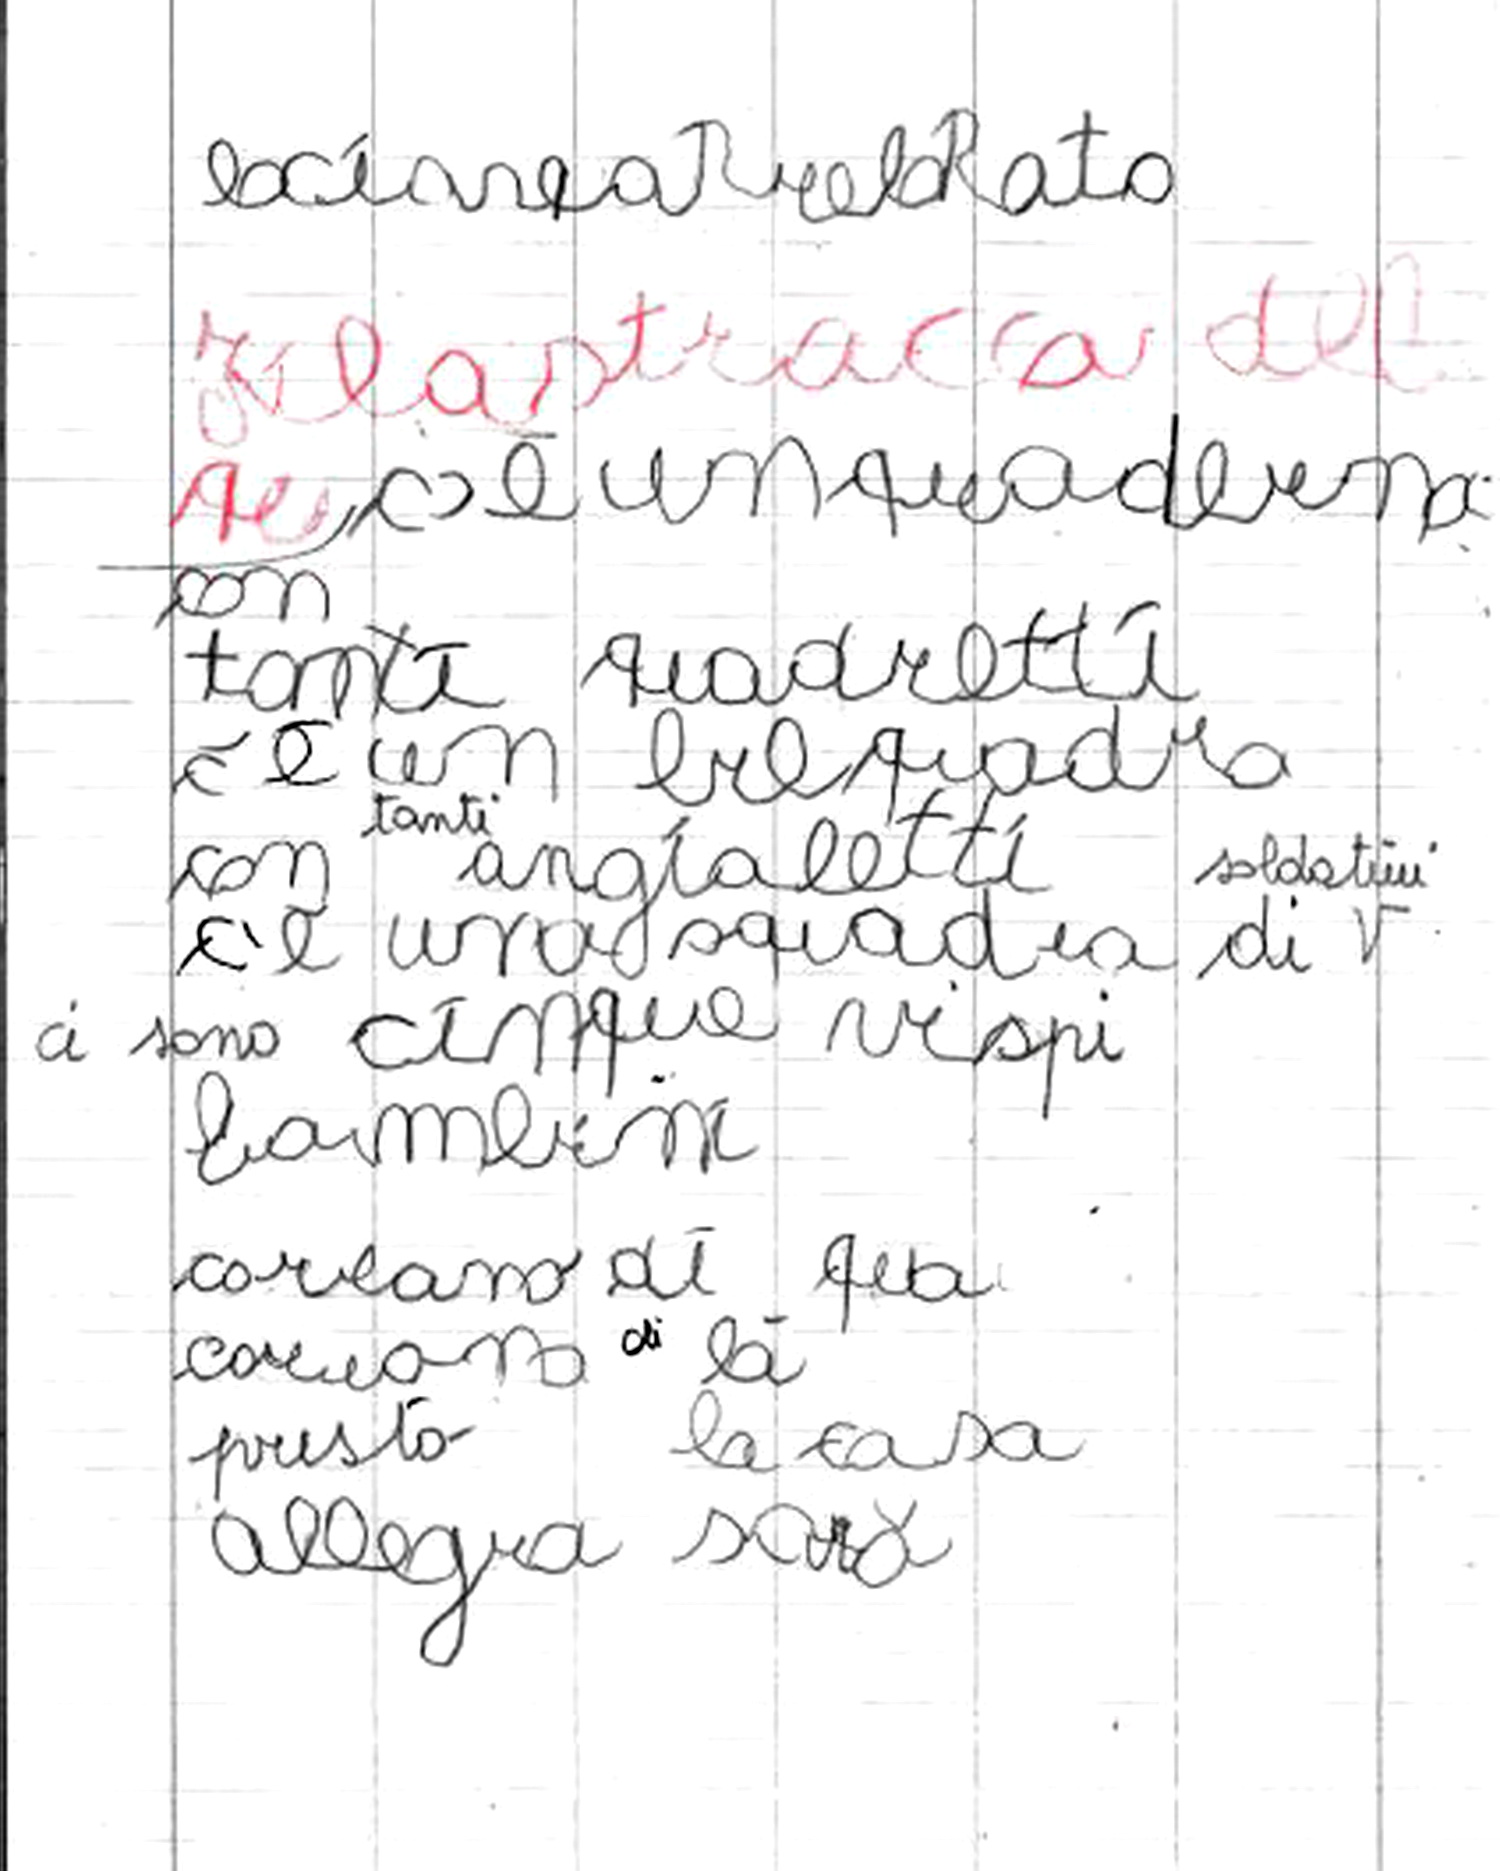 filastracca del
qu, c'è un quaderno
con
tanti quadretti
c'è un bel quadro
con tanti angialetti soldatini
c'è una squadra di V
ci sono cinque vispi
bambini
correano di qua
correano di là
presto la casa
allegra sarà